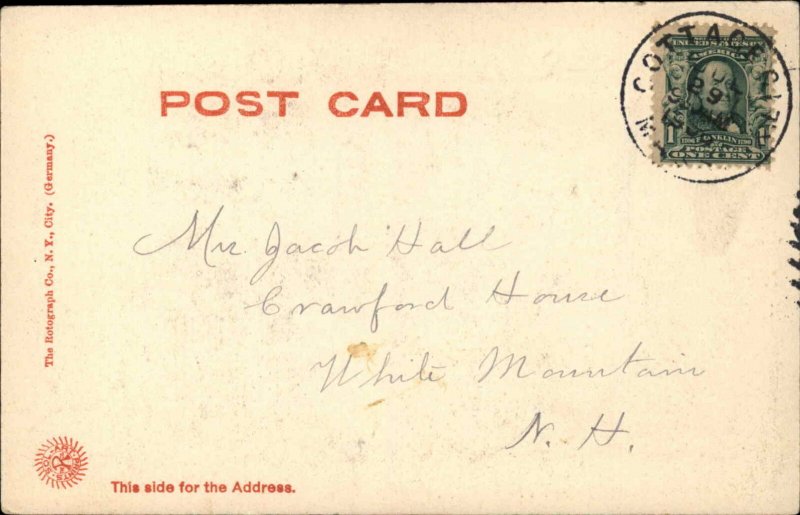 POST CARD
COTTAGE CI
UNITED STATES OF
AMERICA
1 1706 FRANKLIN 1790
POSTAGE
ONE CENT
Jacob Hall
Crawford House
White Mountain
N. H.
The Rotograph Co., N. Y., City. (Germany.)
This side for the Address.